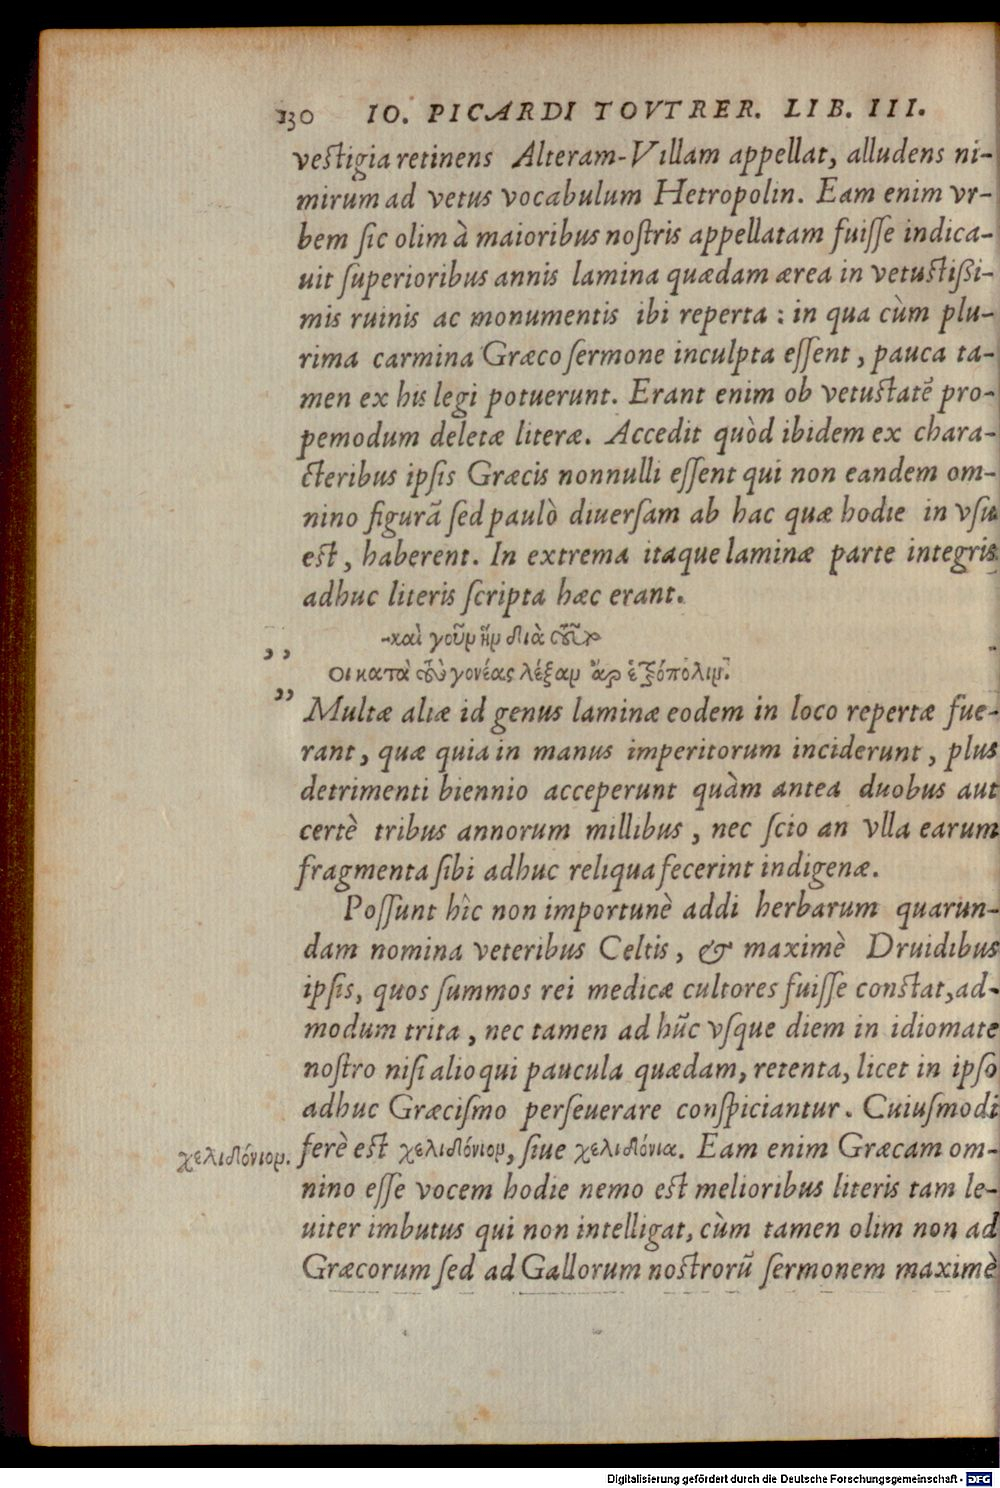 130 IO. PICARDI TOVTRER. LIB. III.
vestigia retinens Alteram-Villam appellat, alludens ni-
mirum ad vetus vocabulum Hetropolin. Eam enim vr-
bem ſic olim à maioribus noſtris appellatam fuiſſe indica-
uit ſuperioribus annis lamina quædam ærea in vetuſtißi-
mis ruinis ac monumentis ibi reperta : in qua cùm plu-
rima carmina Græco ſermone inculpta eſſent, pauca ta-
men ex his legi potuerunt. Erant enim ob vetuſtatē pro-
pemodum deletæ literæ. Accedit quòd ibidem ex chara-
cteribus ipſis Græcis nonnulli eſſent qui non eandem om-
nino figurā ſed paulò diuerſam ab hac quæ hodie in vſu
eſt, haberent. In extrema itaque laminæ parte integris
adhuc literis ſcripta hæc erant.
καὶ γοῦν ἣν διὰ
,, οι κατὰ γονέας λέξαν ἂρ ἑτρόπολιν.
,, Multæ aliæ id genus laminæ eodem in loco repertæ fue-
rant, quæ quia in manus imperitorum inciderunt, plus
detrimenti biennio acceperunt quàm antea duobus aut
certè tribus annorum millibus, nec ſcio an vlla earum
fragmenta ſibi adhuc reliqua fecerint indigenæ.
Poſſunt hîc non importunè addi herbarum quarun-
dam nomina veteribus Celtis, & maximè Druidibus
ipſis, quos ſummos rei medicæ cultores fuiſſe conſtat, ad-
modum trita, nec tamen ad hūc vſque diem in idiomate
noſtro niſi alioqui paucula quædam, retenta, licet in ipſo
adhuc Græciſmo perſeuerare conſpiciantur. Cuiuſmodi
χελιδόνιον. ferè eſt χελιδόνιον, ſiue χελιδόνια. Eam enim Græcam om-
nino eſſe vocem hodie nemo eſt melioribus literis tam le-
uiter imbutus qui non intelligat, cùm tamen olim non ad
Græcorum ſed ad Gallorum noſtrorū ſermonem maximè
Digitalisierung gefördert durch die Deutsche Forschungsgemeinschaft - DFG